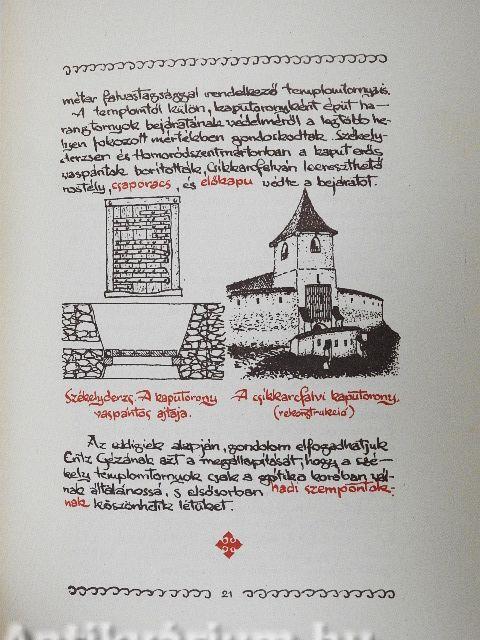 méter falvastagsággal rendelkező templomtornyais.
A templomtól külön, kaputoronyként épült ha-
rangtornyok bejáratának védelméről a legtöbb he-
lyen fokozott mértékben gondoskodtak. Székely-
derzsen és Homoródszentmártonban a kaput erős
vaspántok borították, Csíkkarcfalván leereszthető
rostély, csapórács, és előkapu védte a bejáratot.
Székelyderzs. A kaputorony
vaspántos ajtaja.
A csíkkarcfalvi kaputorony.
(rekonstrukció)
Az eddigiek alapján, gondolom elfogadhatjuk
Entz Gézának azt a megállapítását, hogy a szé-
kely templomtornyok csak a gótika korában vál-
nak általánossá, s elsősorban hadi szempontok-
nak köszönhetik létüket.
21
Antikvárium.hu